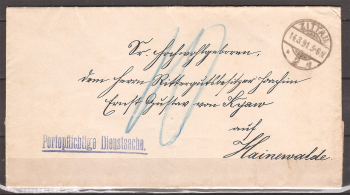 ZITTAU
14.3.91. 5-6N.
Sr. Hochwohlgeboren,
dem Herrn Rittergutsbesitzer Joachim
Ernst Gustav von Kyaw
auf
Hainewalde
Portopflichtige Dienstsache.